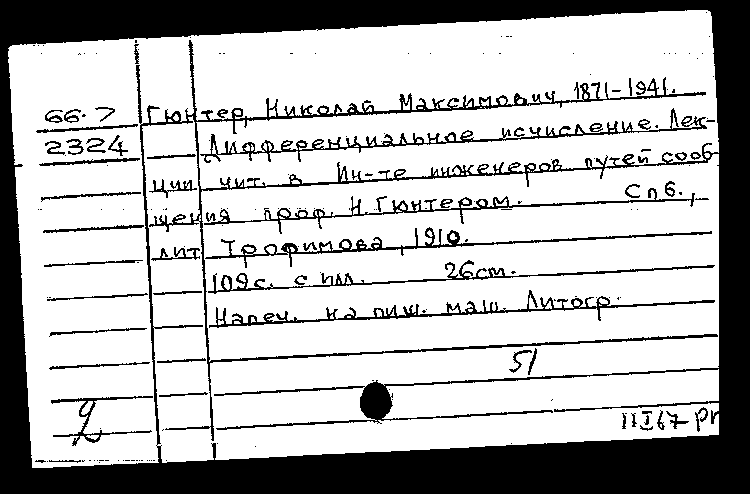 66.7 Гюнтер, Николай Максимович, 1871-1941.
2324 Дифференциальное исчисление. Лек-
ции чит. в Ин-те инженеров путей сооб-
щения проф. Н. Гюнтером. Спб.,
лит Трофимова, 1910.
109с. с илл. 26cm.
Напеч. на пиш. маш. Литогр.
51
2
11 I 67 pr